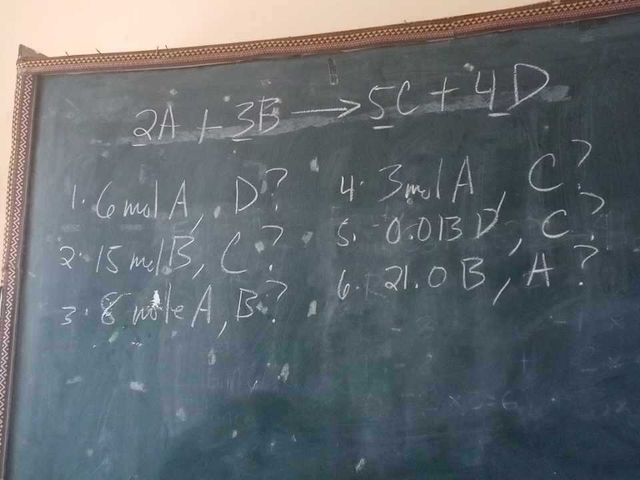 2A + 3B → 5C + 4D
1. 6 mol A, D?
2. 15 mol B, C?
3. 8 mole A, B?
4. 3 mol A, C?
5. 0.013 D, C?
6. 21.0 B, A?